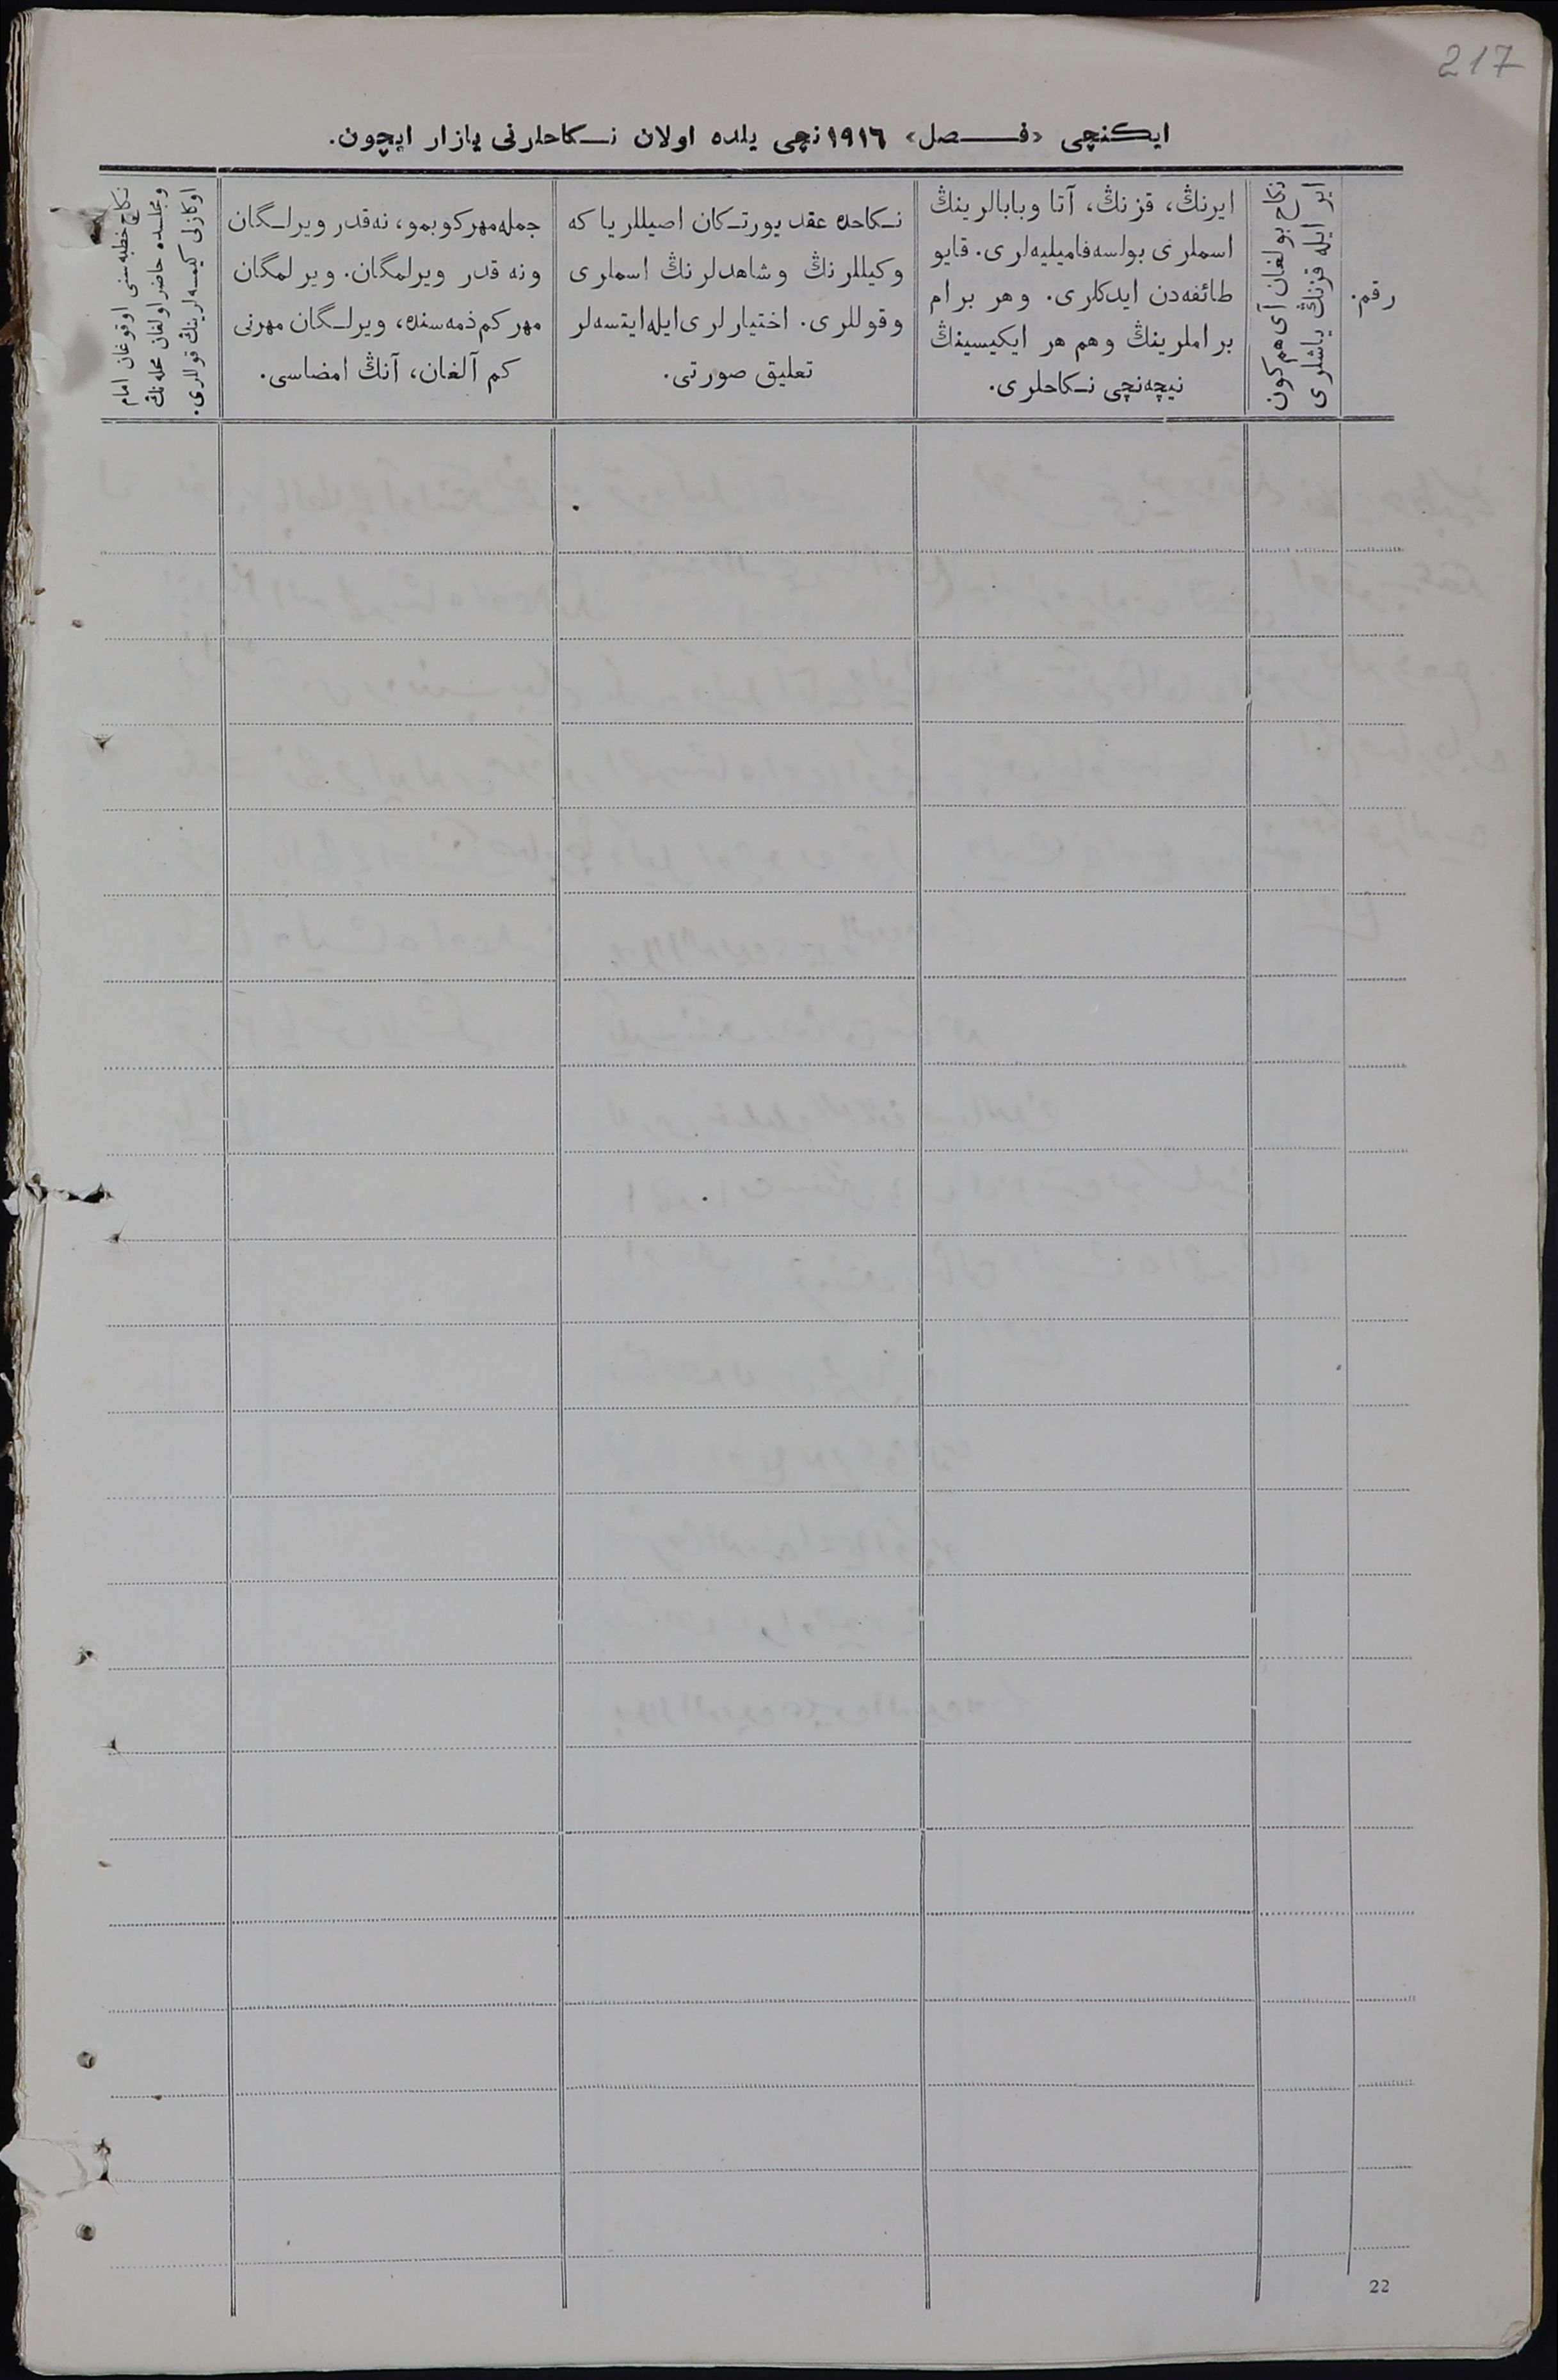 217
ايكنچى «فصل» ١٩١٦نچى يلده اولان نكاحلرنى يازار ايچون.
رقم.
نكاح بولغان آى هم كون
اير ايله قزنڭ ياشلرى
ايرنڭ، قزنڭ، آتا وبابالرينڭ
اسملرى بولسه فاميليه‌لرى. قايو
طائفه‌دن ايدكلرى. وهر برام
براملرينڭ وهم هر ايكيسينڭ
نيچه‌نچى نكاحلرى.
نكاحده عقد يورتكان اصيللر يا كه
وكيللرنڭ وشاهدلرنڭ اسملرى
وقوللرى. اختيارلرى ايله ايتسه‌لر
تعليق صورتى.
جمله مهر كوبمو، نه‌قدر ويرلگان
ونه قدر ويرلمگان. ويرلمگان
مهر كم ذمه‌سنده، ويرلگان مهرنى
كم آلغان، آنڭ امضاسى.
نكاح خطبه‌سنى اوقوغان امام
ومجلسده حاضر اولغان محله‌نڭ
اوكازلى كيمسه‌لرينڭ قوللرى.
22